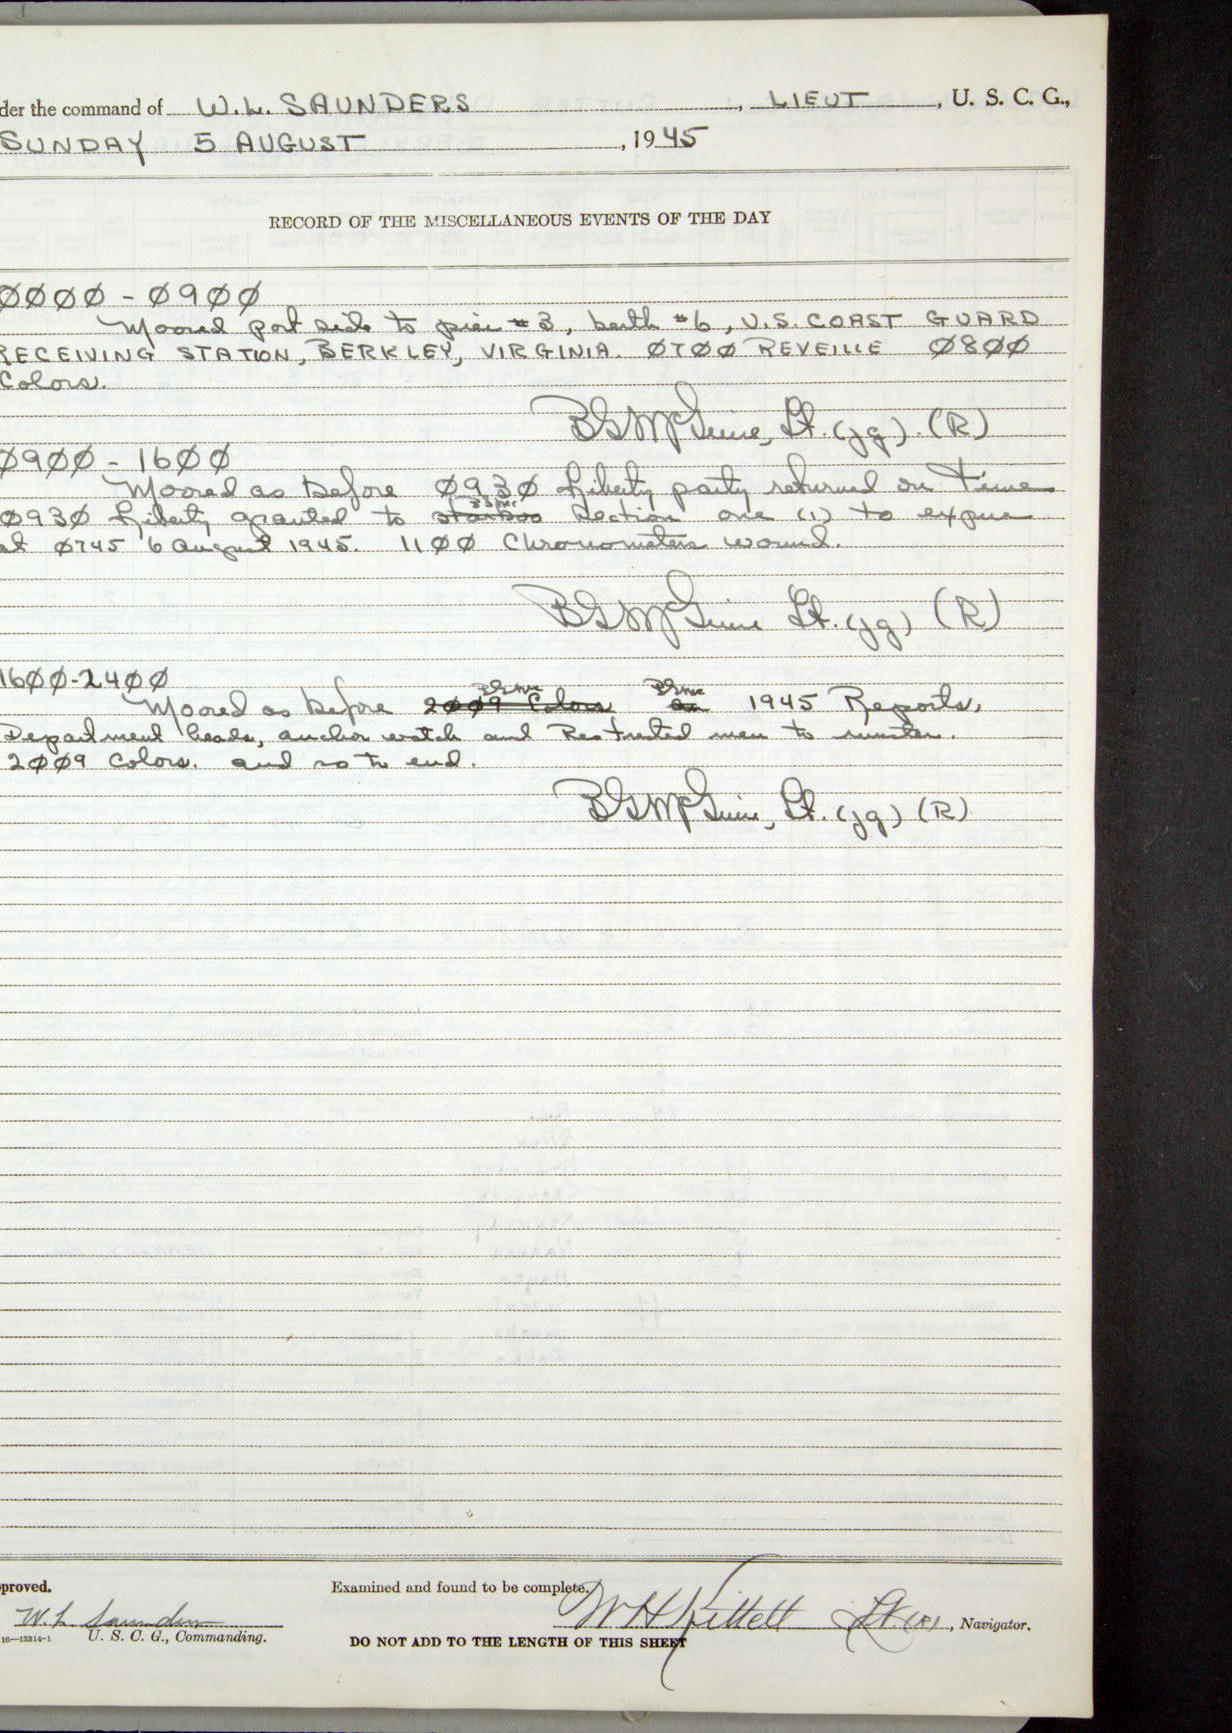 der the command of W.L. SAUNDERS, LIEUT, U. S. C. G.,
SUNDAY 5 AUGUST, 1945
RECORD OF THE MISCELLANEOUS EVENTS OF THE DAY
0000 - 0900
Moored port side to pier #3, berth #6, U.S. COAST GUARD
RECEIVING STATION, BERKLEY, VIRGINIA. 0700 REVEILLE 0800
Colors.
BGMcGuire, Lt. (jg). (R)
0900 - 1600
Moored as before 0930 Liberty party returned on time
0930 Liberty granted to section one (1) to expire
at 0745 6 August 1945. 1100 Chronometers wound.
BGMcGuire Lt. (jg) (R)
1600-2400
Moored as before 2009 Colors 1945 Reports,
Department heads, anchor watch and Restricted men to muster.
2009 Colors. and so to end.
BGMcGuire, Lt. (jg) (R)
pproved.
Examined and found to be complete.
W. L. Saunders
W H Kittell Lt. (R), Navigator.
16—13314-1 U. S. C. G., Commanding.
DO NOT ADD TO THE LENGTH OF THIS SHEET